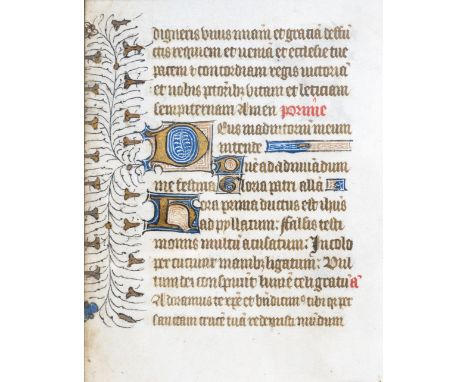 digneris viuis miam et gratia deffu
ctis requiem et uenia et ecclesie tue
pacem et concordiam regis uictoria
et nobis pctorib; vitam et leticiam
sempiternam Amen
Deus in adiutorium meum
intende
Dne ad adiuuadum
me festina Gloria patri alla
Hora prima ductus est ihus
ad pyllatum: ffalsis testi
moniis multu acusatum: In colo
per cuciut manib; ligatum: Uul
tum dei conspuut lume celi gratu
Adoramus te xpe et bndicim9 tibi qr per
sanctam cruce tua redemisti mudum